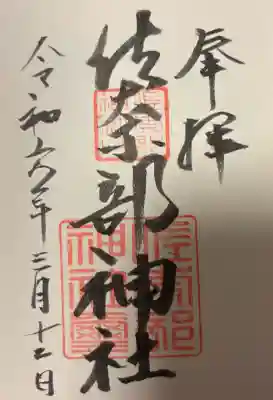 奉拝
佐奈部神社
令和六年三月十二日